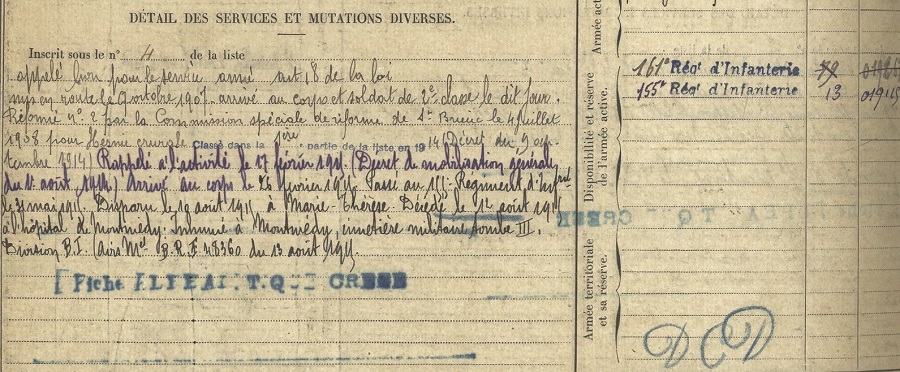 DÉTAIL DES SERVICES ET MUTATIONS DIVERSES.
Inscrit sous le n° 4 de la liste
appelé bon pour le service armé art 18 de la loi
mis en route le 9 octobre 1907 arrivé au corps et soldat de 2e classe le dit jour.
Réformé n° 2 par la Commission spéciale de réforme de St Brieuc le 4 juillet
1908 pour Hernie crurale. Classé dans la 1ère partie de la liste en 1914 (Décret du 9 sep-
tembre 1914) Rappelé à l'activité le 17 février 1915 (Décret de mobilisation générale
du 1er août 1914) Arrivé au corps le 26 février 1915. Passé au Régiment d'Infrie
le 31 mai 1915. Disparu le août 1915 à Marie-Thérèse. Décédé le 1er août 1915
à l'hôpital de Montmédy. Inhumé à Montmédy, cimetière militaire tombe III.
Division B.I. (avis Mel B.R.E 48360 du 13 août 1915.
Fiche
Armée active
Disponibilité et réserve de l'armée active.
161e Régt d'Infanterie
155e Régt d'Infanterie 13
Armée territoriale et sa réserve.
DCD